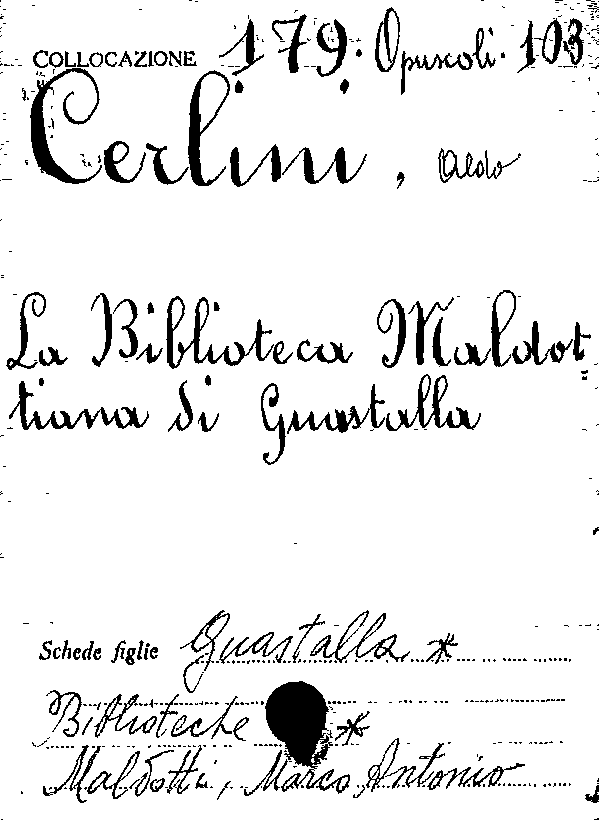 COLLOCAZIONE 179. Opuscoli. 103
Cerlini, Aldo
La Biblioteca Maldot=
tiana di Guastalla
Schede figlie Guastalla *
Biblioteche *
Maldotti, Marco Antonio